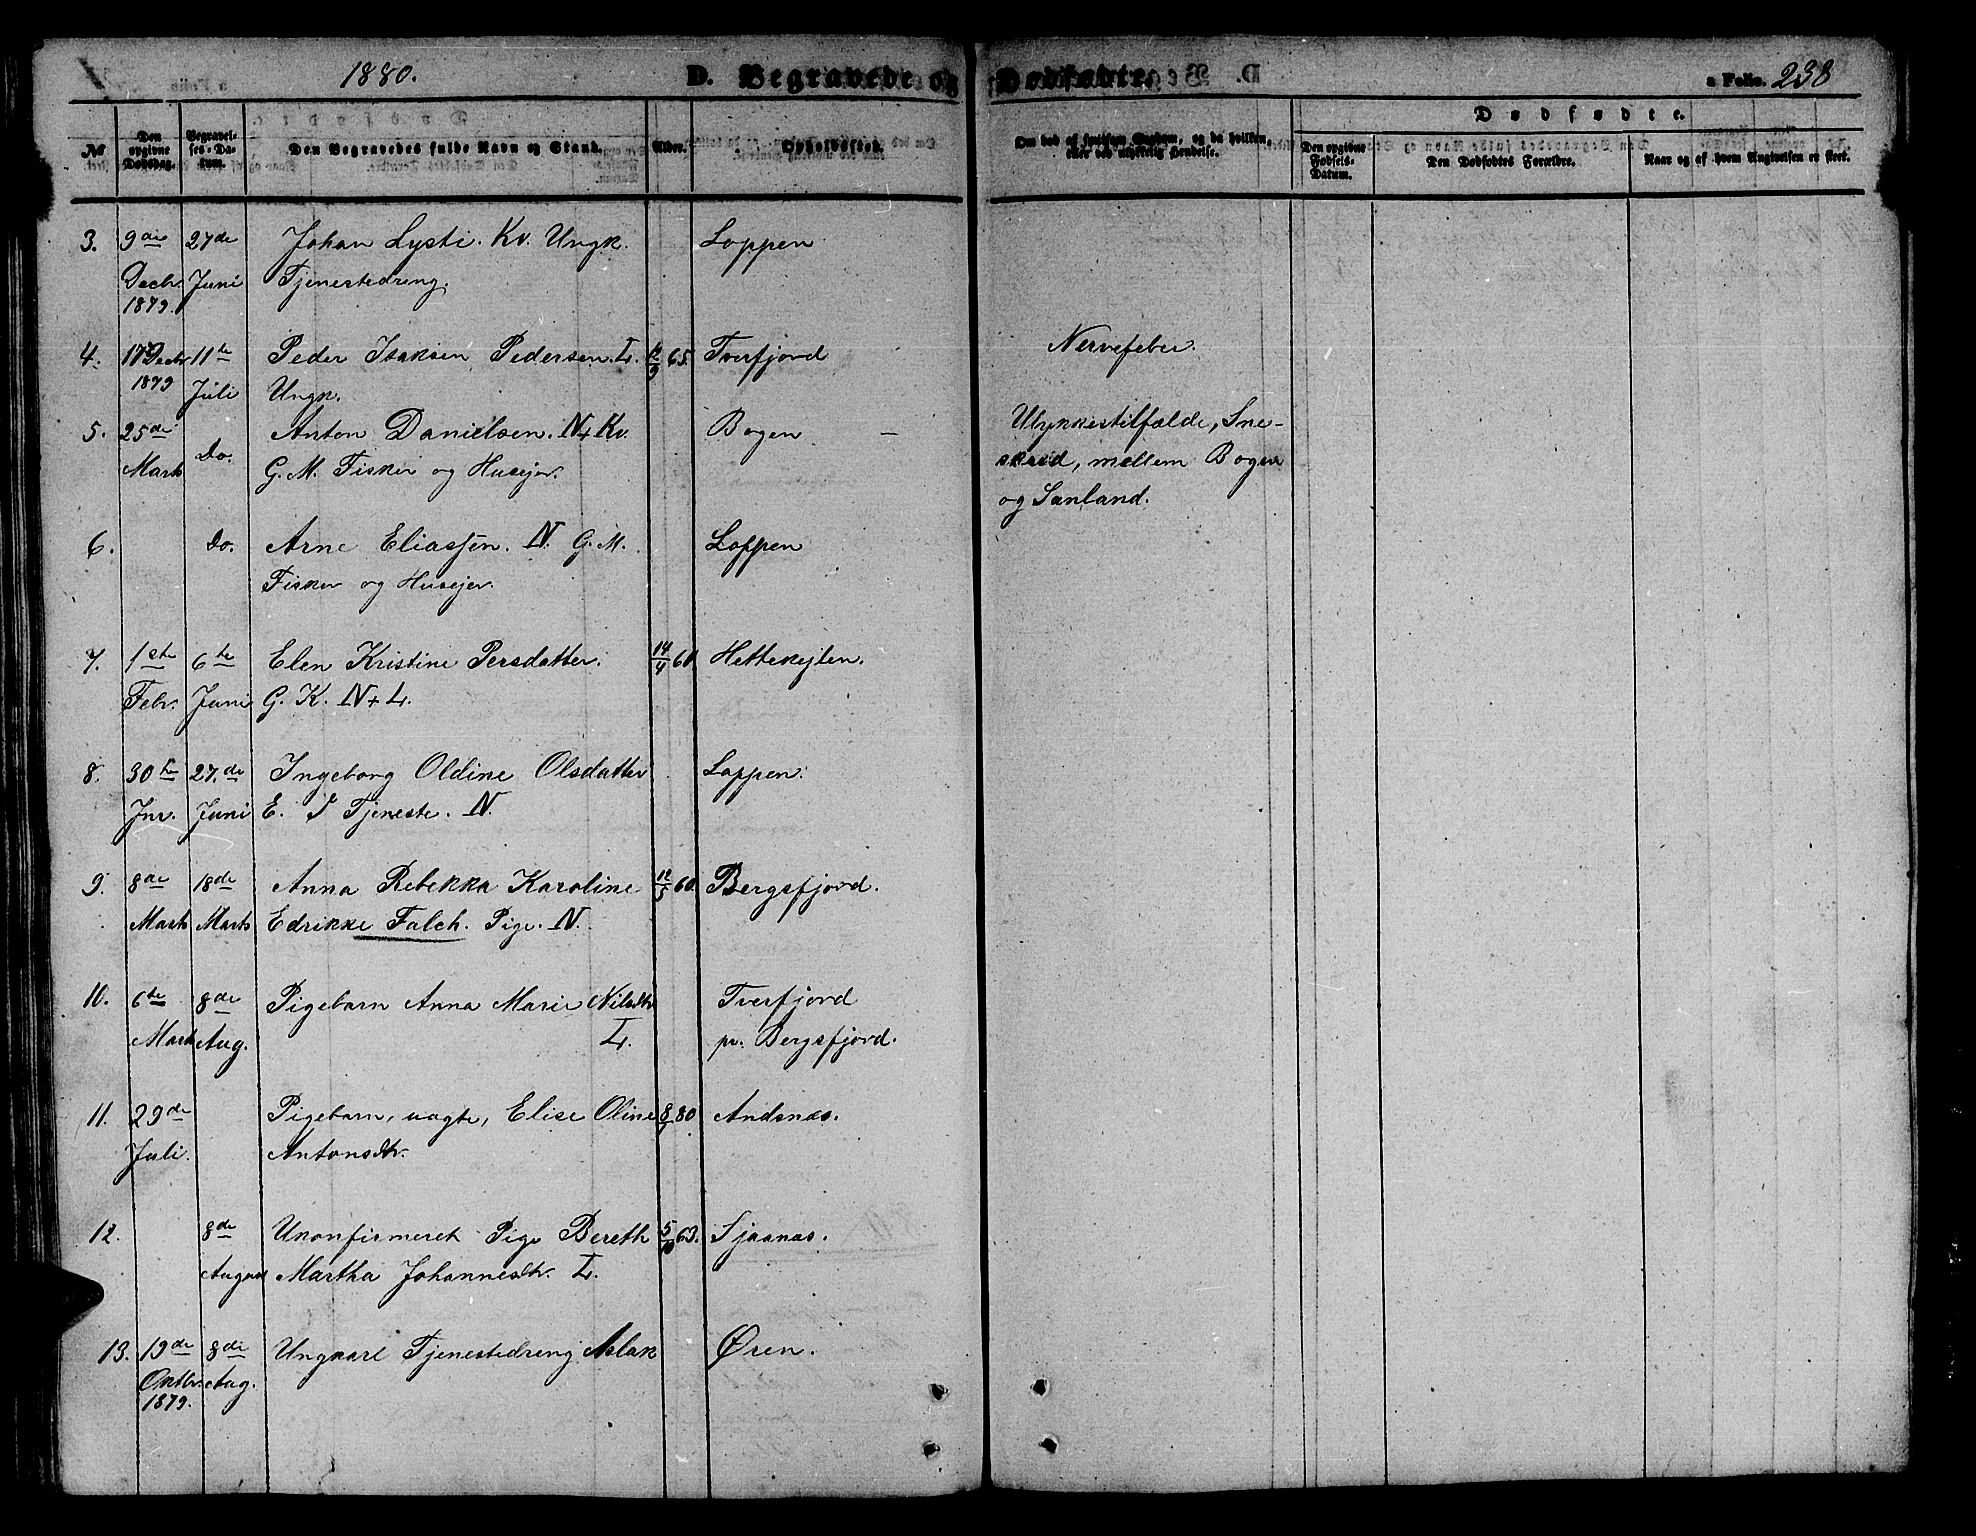 1880.
D. Begravede og Dødfødte.
a Folio. 238
Dødfødte.
No
Den opgivne Dødsdag.
Begravelses-Datum.
Den Begravedes fulde Navn og Stand.
Alder.
Opholdssted.
Om død af smitsom Sygdom, og da hvilken, eller ved ulykkelig Hendelse.
Den opgivne Fødsels-Datum.
Den Dødfødtes Forældre.
Naar og af hvem Angivelsen er skeet.
3. 9de 27de Johan Lysti. Kv. Ungk. Loppen
Decbr. Juni Tjenestedreng.
1879.
4. Decbr 11te Peder Isaksen Pedersen. L. 65. Tverfjord Nervefeber.
1879 Juli Ungk.
5. 25de Do. Anton Danielsen. N+Kv. Bogen Ulykkestilfælde, Sne-
Marts G. M. Fisker og Husejer. skred, mellem Bogen
og Sanland.
6. Do. Arne Eliassen. N. G. M. Loppen
Fisker og Husejer.
7. 1ste 6te Elen Kristine Persdatter. 14/4 61. Hettekejlen.
Febr. Juni G. K. N+L.
8. 30te 27.de Ingeborg Oldine Olsdatter Loppen.
Jnr. Juni E. I Tjeneste. N.
9. 8de 18de Anna Rebekka Karoline 12/5 60. Bergsfjord.
Marts Marts Edrikke Falch. Pige. N.
10. 6te 8de Pigebarn Anna Marie Nilsdtr Tverfjord
Marts Aug. L. pr. Bergsfjord.
11. 29de Pigebarn, uægte, Elise Oline 80 Andsnæs.
Juli. Antonsdtr.
12. 8de Ukonfirmeret Pige Bereth 5/10 63. Sjaanæs.
August Martha Johannesdtr. L.
13. 19de 8de Ungkarl Tjenestedreng Aslak Øren.
Oktbr. Aug.
1879.